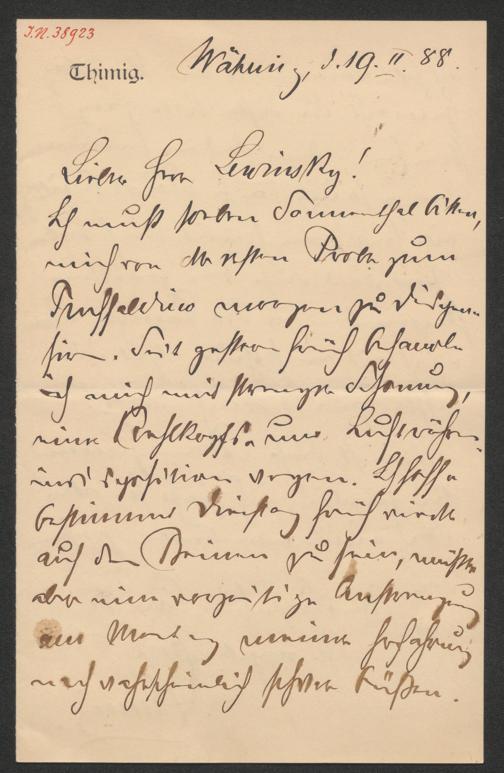 I.N. 38923
Thimig.
Währing, d. 19. II. 88.
Lieber Herr Lewinsky!
Ich muß soeben Sonnenthal bitten,
mich von der ersten Probe zum
Truffaldino morgen zu dispen-
siren. Seit gestern früh behandle
ich mich mit strenger Schonung,
einer Kehlkopfs- und Luftröhren-
indisposition wegen. Ich hoffe
bestimmt Dienstag früh wieder
auf den Beinen zu sein, müßte
aber eine vorzeitige Anstrengung
am Montag meiner Erfahrung
nach wahrscheinlich schwer büßen.